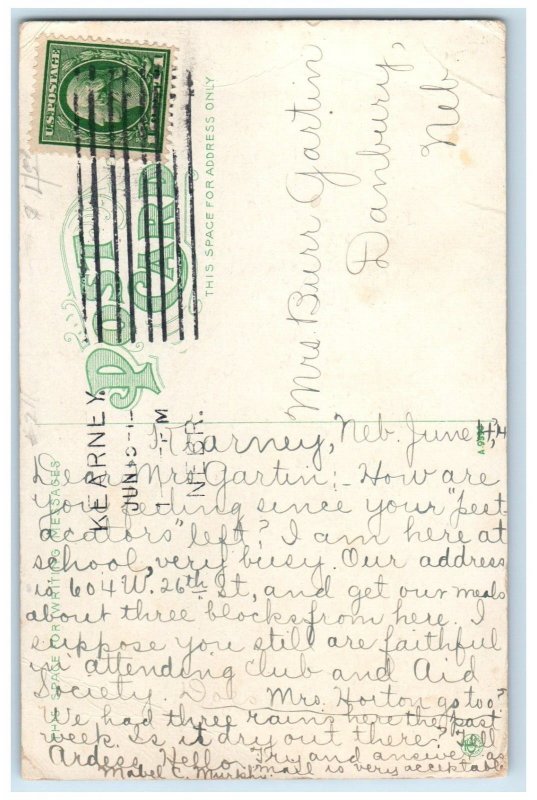 U.S. POSTAGE
POST CARD
THIS SPACE FOR ADDRESS ONLY
THIS SPACE FOR WRITING MESSAGES
KEARNEY.
JUN
1 M
NEBR.
Mrs Burr Gartin
Danbury,
Neb
Kearney, Neb. June
Dear Mrs. Gartin:- How are
you feeling since your "pest-
acators" left? I am here at
school, very busy. Our address
is 604 W. 26th St, and get our meals
about three blocks from here. I
suppose you still are faithful
in attending club and Aid
Society. Does Mrs. Horton go too?
We had three rains here the past
week. Is it dry out there? Tell
Ardess Hello. Try and answer, as
Mabel C. mail is very acceptable